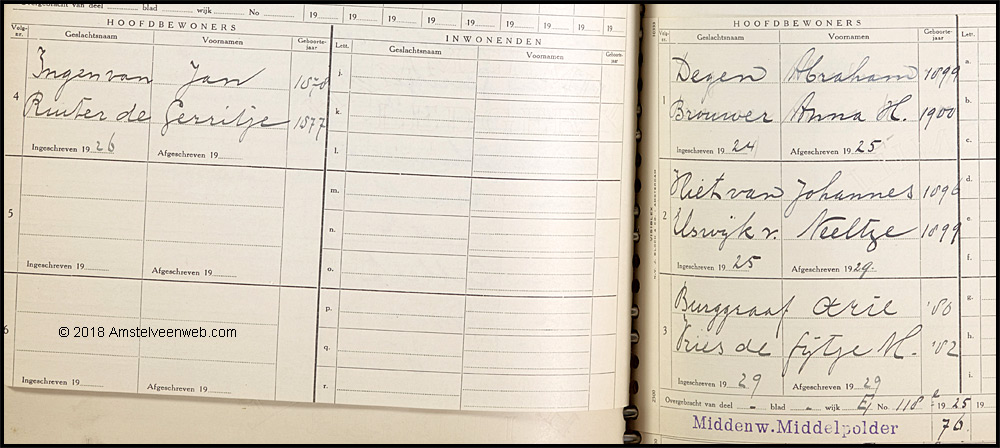 Overgebracht van deel blad wijk No 19 19 19 19 19 19 19 19
HOOFDBEWONERS
Volg-nr. Geslachtsnaam Voornamen Geboorte-jaar
4 Ingen van Jan 1878
Ruiter de Gerritje 1877
Ingeschreven 19 26 Afgeschreven 19
5
Ingeschreven 19 Afgeschreven 19
6
© 2018 Amstelveenweb.com
Ingeschreven 19 Afgeschreven 19
INWONENDEN
Lett. Geslachtsnaam Voornamen Geboorte-jaar
j.
k.
l.
m.
n.
o.
p.
q.
r.
HOOFDBEWONERS
Volg-nr. Geslachtsnaam Voornamen Geboorte-jaar Lett.
1 Degen Abraham 1899 a.
Brouwer Anna H. 1900 b.
Ingeschreven 19 24 Afgeschreven 19 25 c.
2 Niet van Johannes 1896 d.
IJswijk v. Neeltje 1899 e.
Ingeschreven 19 25 Afgeschreven 19 29. f.
3 Burggraaf Arie '80 g.
Vries de Fijtje M. '82 h.
Ingeschreven 19 29 Afgeschreven 19 29 i.
Overgebracht van deel - blad - wijk E No. 118 19 25 19
Middenw. Middelpolder 76.